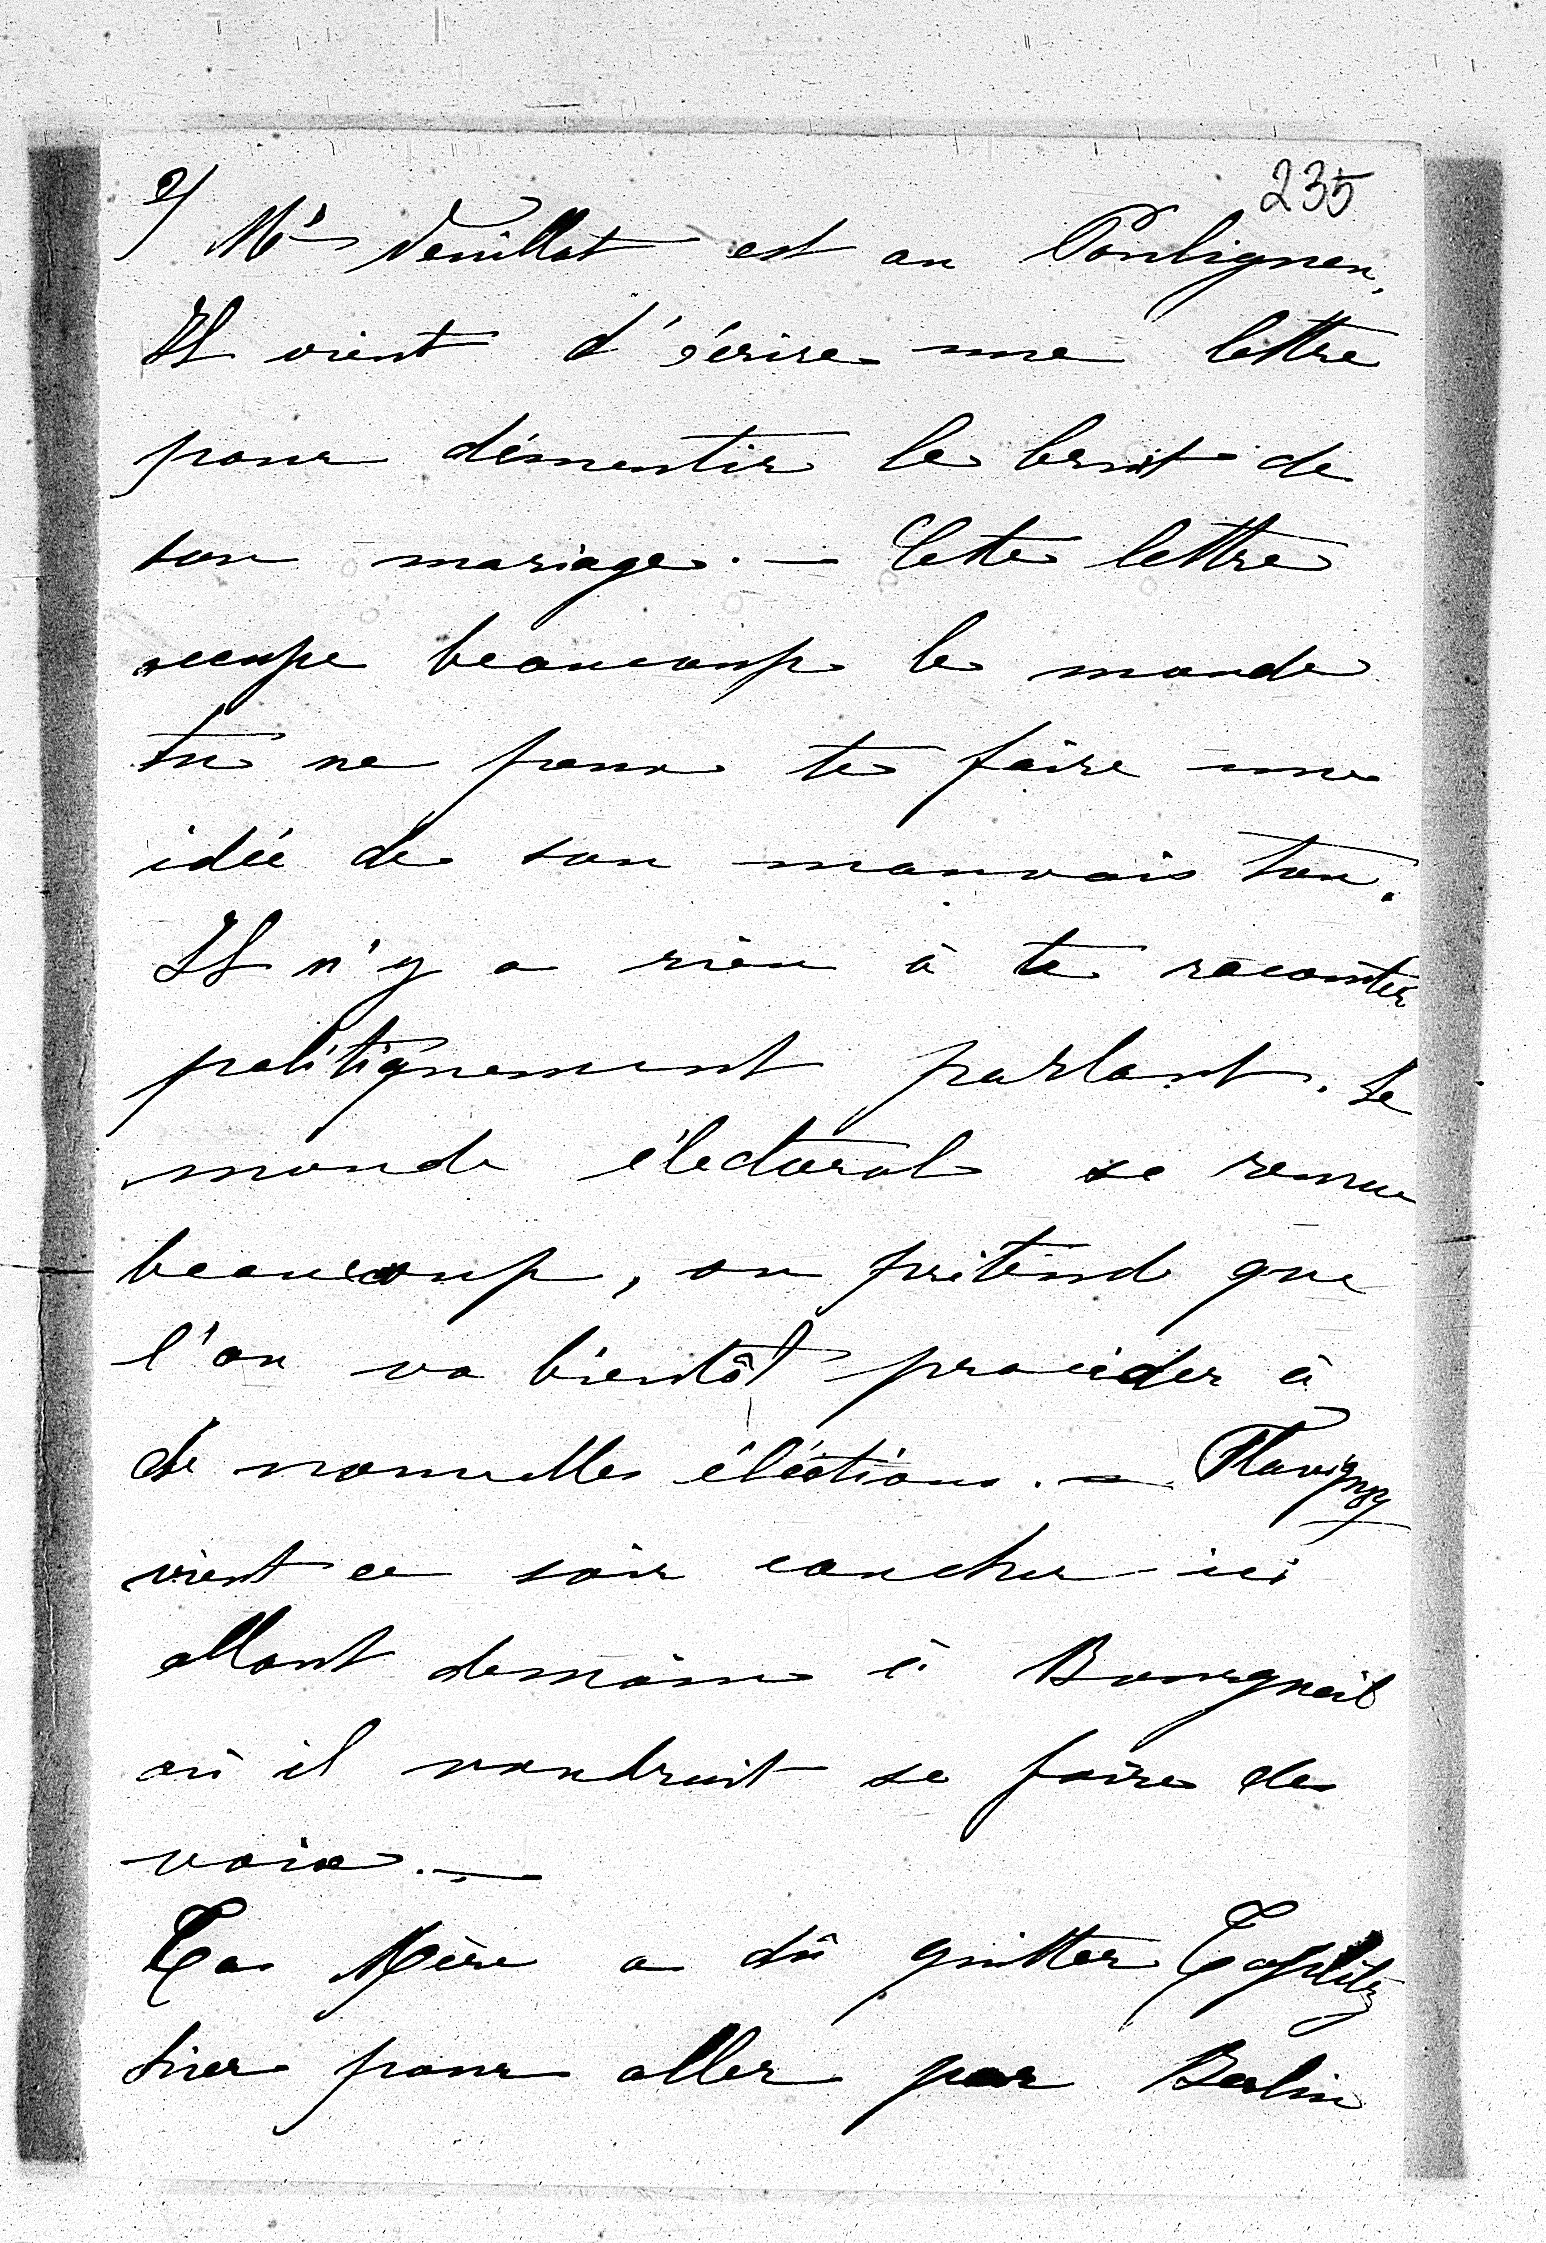 235
2/ Mr Veuillot est au Pouliguen,
Il vient d'écrire une lettre
pour démentir le bruit de
son mariage. — Cette lettre
occupe beaucoup le monde
tu ne peux te faire une
idée de son mauvais ton.
Il n'y a rien à te raconter
politiquement parlant. Le
monde électoral se remue
beaucoup, on prétend que
l'on va bientôt procéder à
de nouvelles éléctions. — Flavigny
vient ce soir coucher ici
allant demain à Bourgueil
où il voudrait se faire des
voix. —
Ta Mère a dû quitter Toeplitz
hier pour aller par Berlin